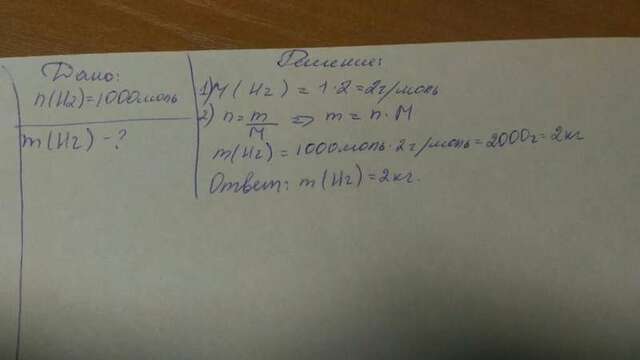 Дано:
n(H2)=1000моль
m(H2)-?
Решение:
1)M(H2)=1·2=2г/моль
2) n=m/M => m=n·M
m(H2)=1000моль·2г/моль=2000г=2кг
Ответ: m(H2)=2кг.